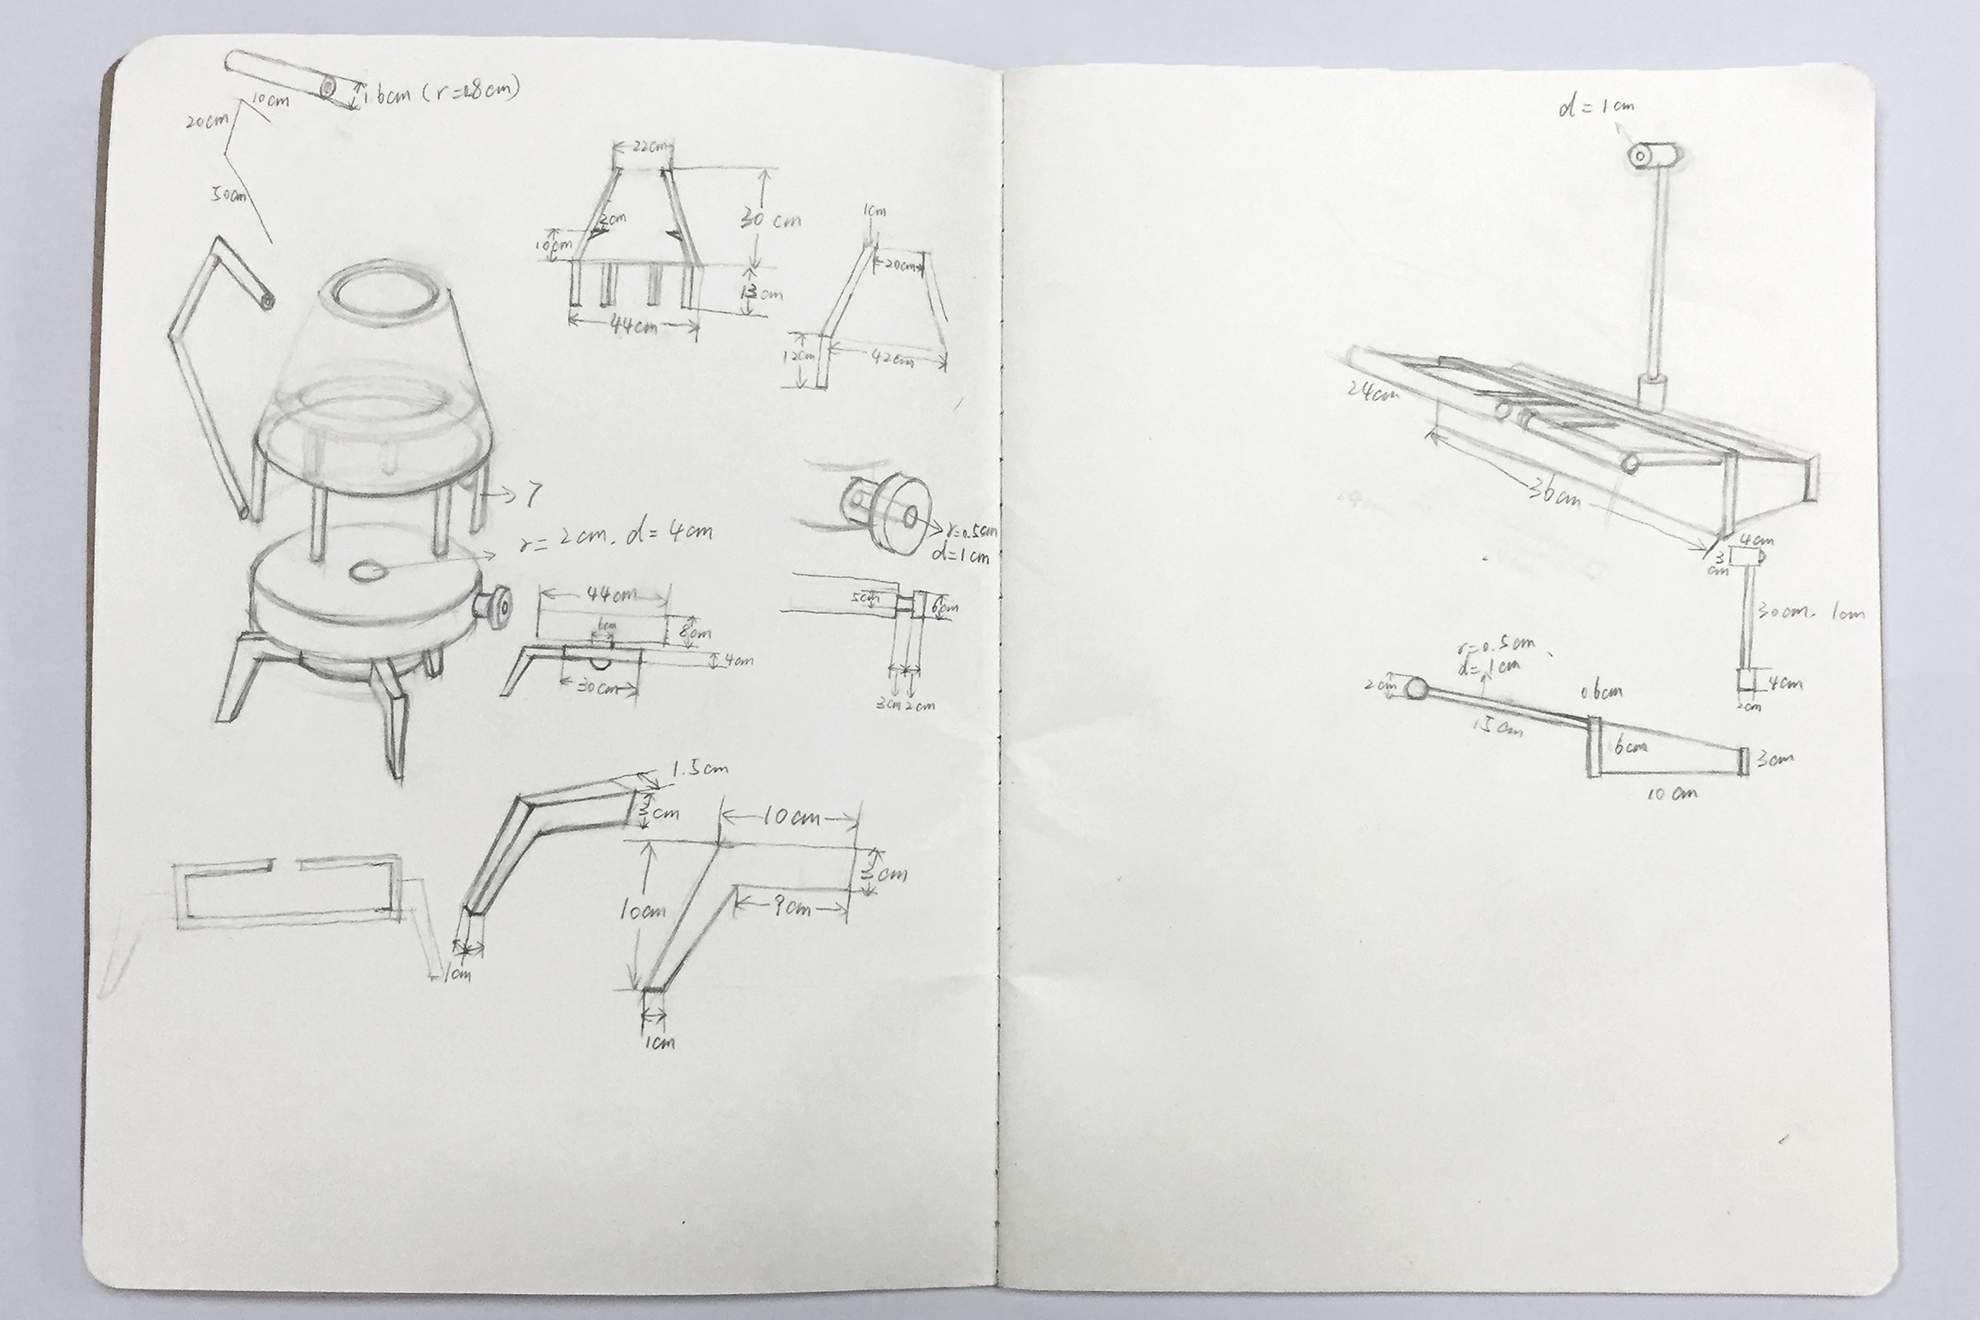 1.6cm (r=0.8cm)
10cm
20cm
50cm
22cm
30 cm
2cm
10cm
13cm
44cm
1cm
20cm
12cm
42cm
7
r= 2cm. d= 4cm
r=0.5cm
d=1cm
44cm
6cm
8cm
4cm
30cm
5cm
6cm
3cm 2cm
1.5cm
3cm
1cm
10cm
3cm
10cm
9cm
1cm
d=1cm
24cm
36cm
4cm
3
cm
30cm. 1cm
4cm
2cm
r=0.5cm.
d=1cm
2cm
15cm
0.6cm
6cm
3cm
10cm